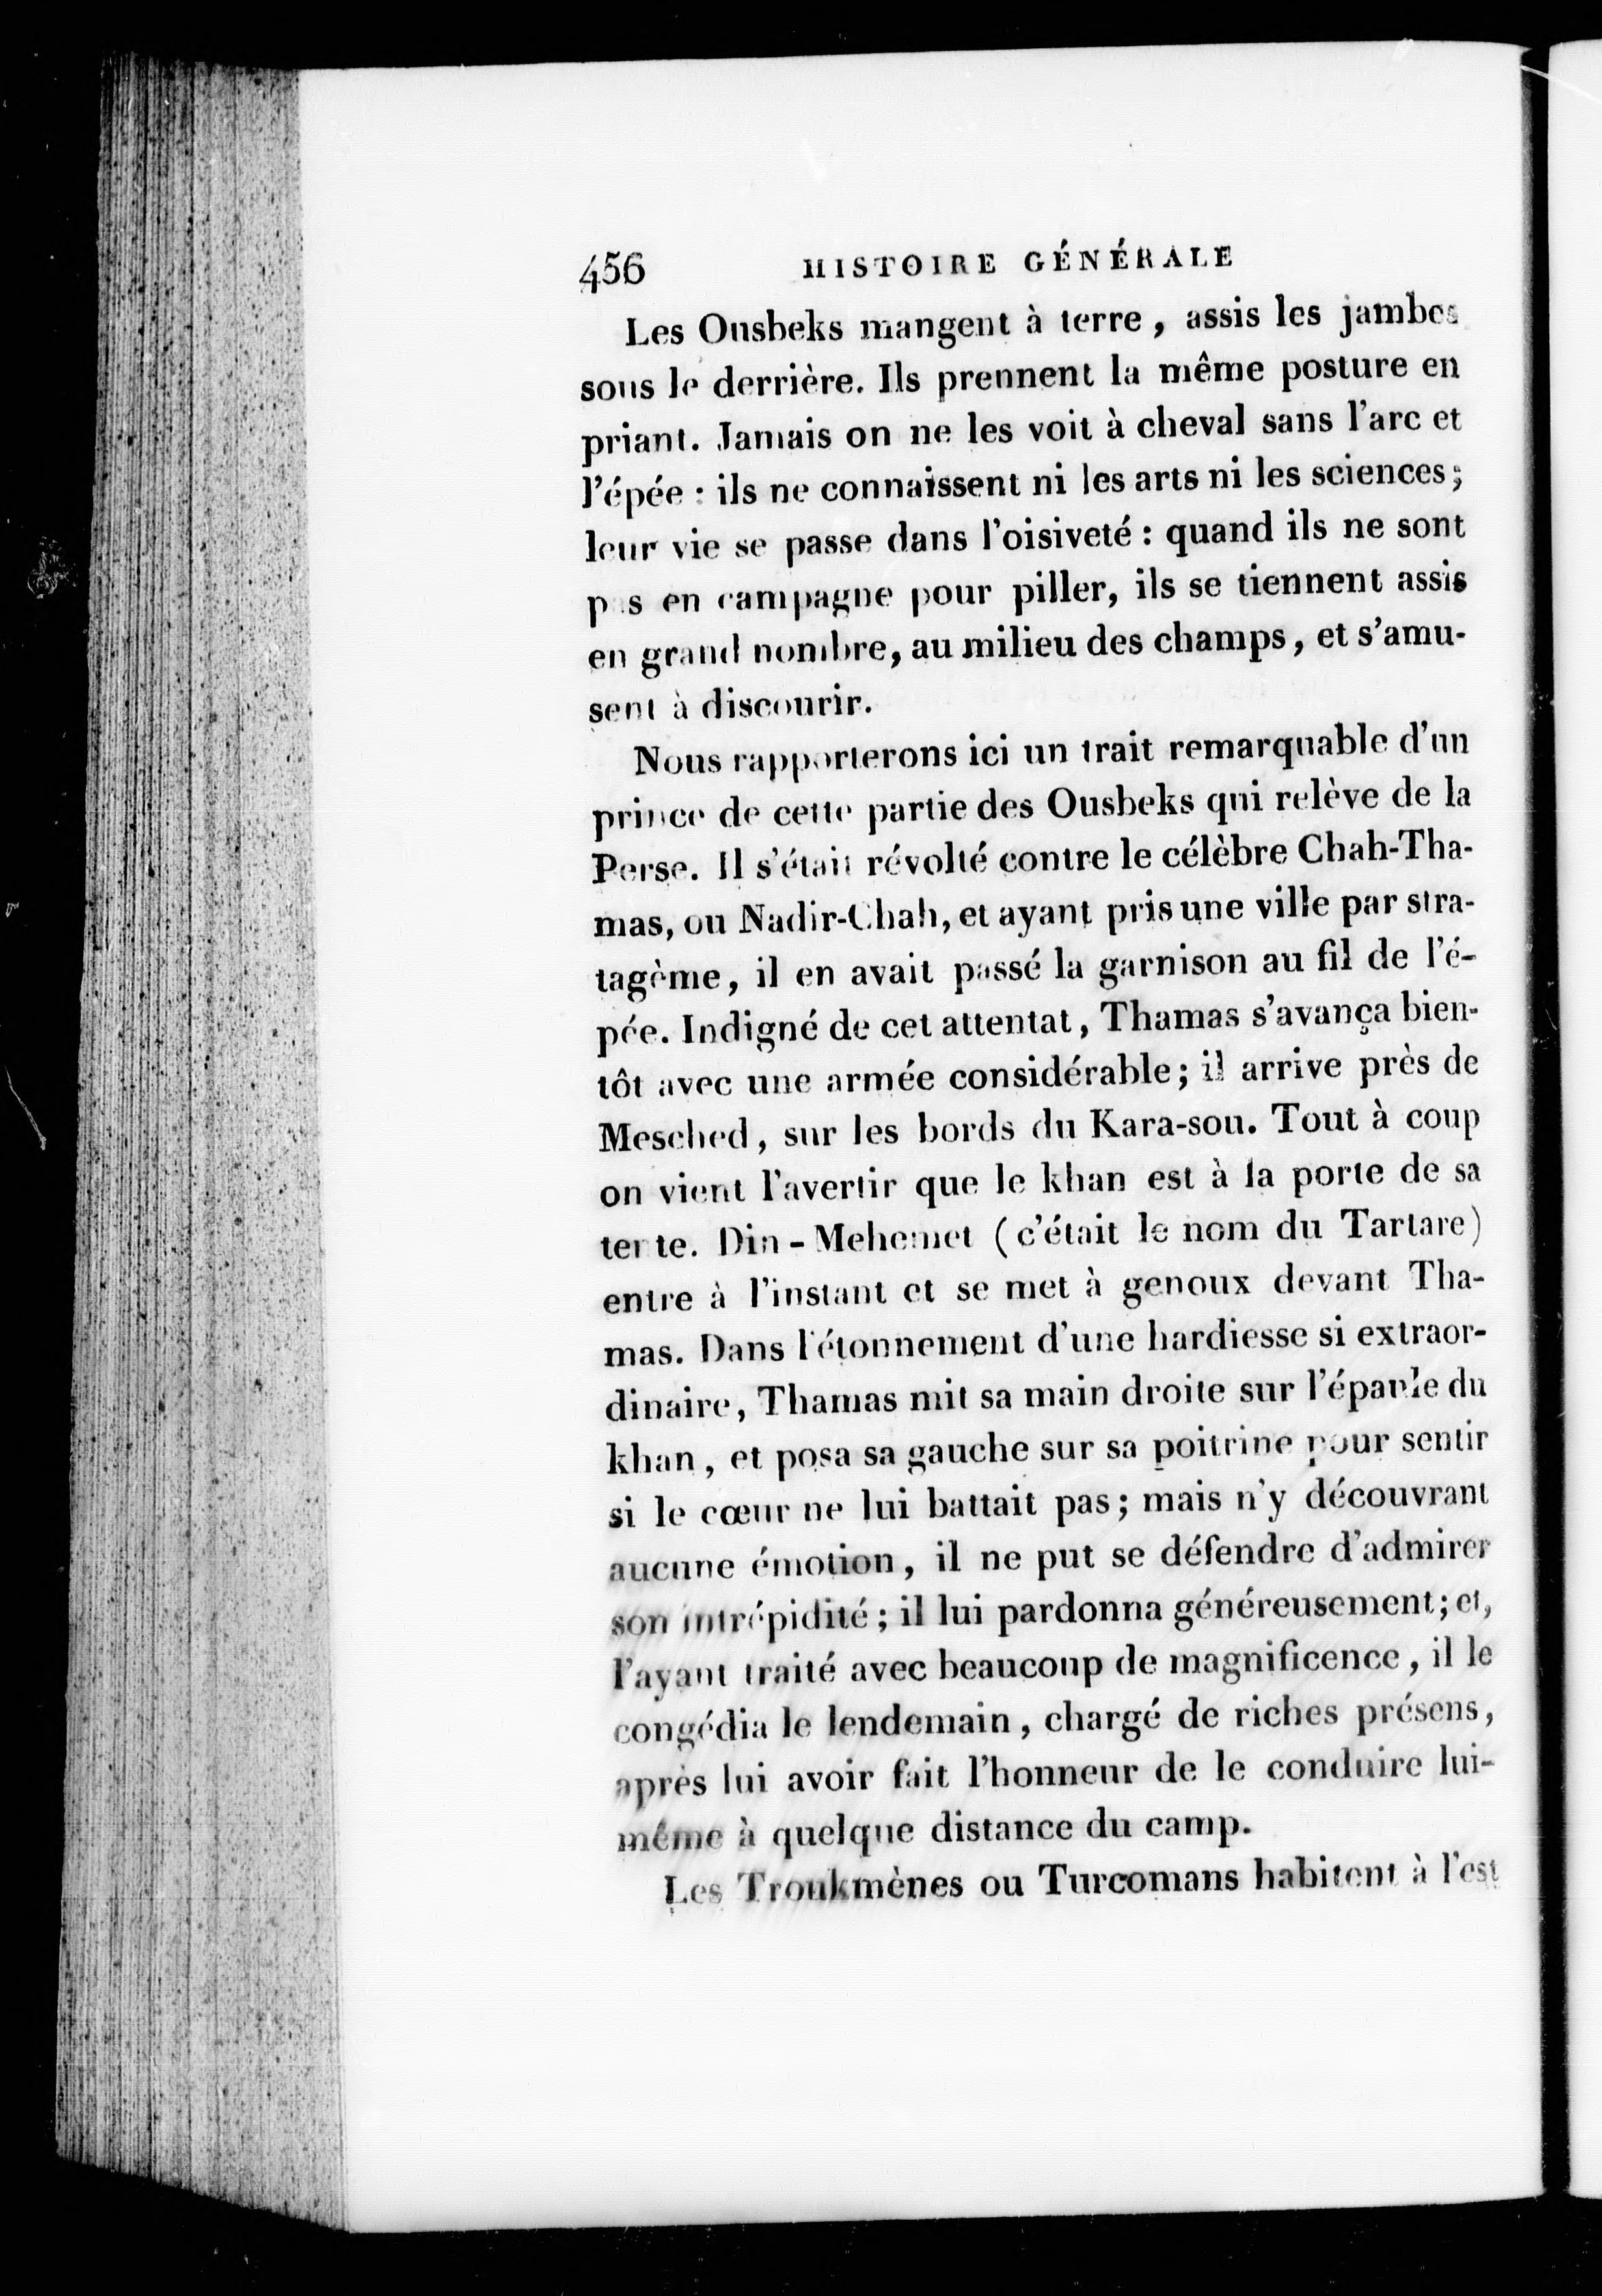 456 HISTOIRE GÉNÉRALE
Les Ousbeks mangent à terre, assis les jambes
sous le derrière. Ils prennent la même posture en
priant. Jamais on ne les voit à cheval sans l'arc et
l'épée : ils ne connaissent ni les arts ni les sciences;
leur vie se passe dans l'oisiveté : quand ils ne sont
pas en campagne pour piller, ils se tiennent assis
en grand nombre, au milieu des champs, et s'amu-
sent à discourir.
Nous rapporterons ici un trait remarquable d'un
prince de cette partie des Ousbeks qui relève de la
Perse. Il s'était révolté contre le célèbre Chah-Tha-
mas, ou Nadir-Chah, et ayant pris une ville par stra-
tagème, il en avait passé la garnison au fil de l'é-
pée. Indigné de cet attentat, Thamas s'avança bien-
tôt avec une armée considérable; il arrive près de
Mesched, sur les bords du Kara-sou. Tout à coup
on vient l'avertir que le khan est à la porte de sa
tente. Din-Mehemet (c'était le nom du Tartare)
entre à l'instant et se met à genoux devant Tha-
mas. Dans l'étonnement d'une hardiesse si extraor-
dinaire, Thamas mit sa main droite sur l'épaule du
khan, et posa sa gauche sur sa poitrine pour sentir
si le cœur ne lui battait pas; mais n'y découvrant
aucune émotion, il ne put se défendre d'admirer
son intrépidité; il lui pardonna généreusement; et,
l'ayant traité avec beaucoup de magnificence, il le
congédia le lendemain, chargé de riches présens,
après lui avoir fait l'honneur de le conduire lui-
même à quelque distance du camp.
Les Troukmènes ou Turcomans habitent à l'est